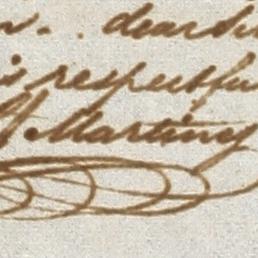 dear
is respectfu
Martiney